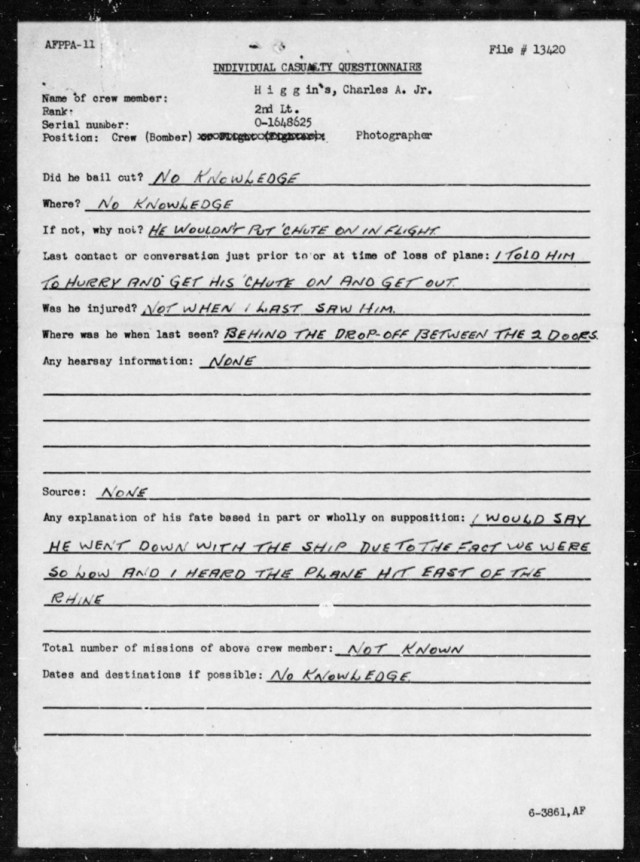 AFPPA-11
File # 13420
INDIVIDUAL CASUALTY QUESTIONNAIRE
Name of crew member: H i g g in's, Charles A. Jr.
Rank: 2nd Lt.
Serial number: O-1648625
Position: Crew (Bomber) or Flight (Fighter) Photographer
Did he bail out? NO KNOWLEDGE
Where? NO KNOWLEDGE
If not, why not? HE WOULDN'T PUT 'CHUTE ON IN FLIGHT.
Last contact or conversation just prior to or at time of loss of plane: I TOLD HIM
TO HURRY AND GET HIS 'CHUTE ON AND GET OUT.
Was he injured? NOT WHEN I LAST SAW HIM.
Where was he when last seen? BEHIND THE DROP-OFF BETWEEN THE 2 DOORS.
Any hearsay information: NONE
Source: NONE
Any explanation of his fate based in part or wholly on supposition: I WOULD SAY
HE WENT DOWN WITH THE SHIP DUE TO THE FACT WE WERE
SO LOW AND I HEARD THE PLANE HIT EAST OF THE
RHINE
Total number of missions of above crew member: NOT KNOWN
Dates and destinations if possible: NO KNOWLEDGE.
6-3861,AF